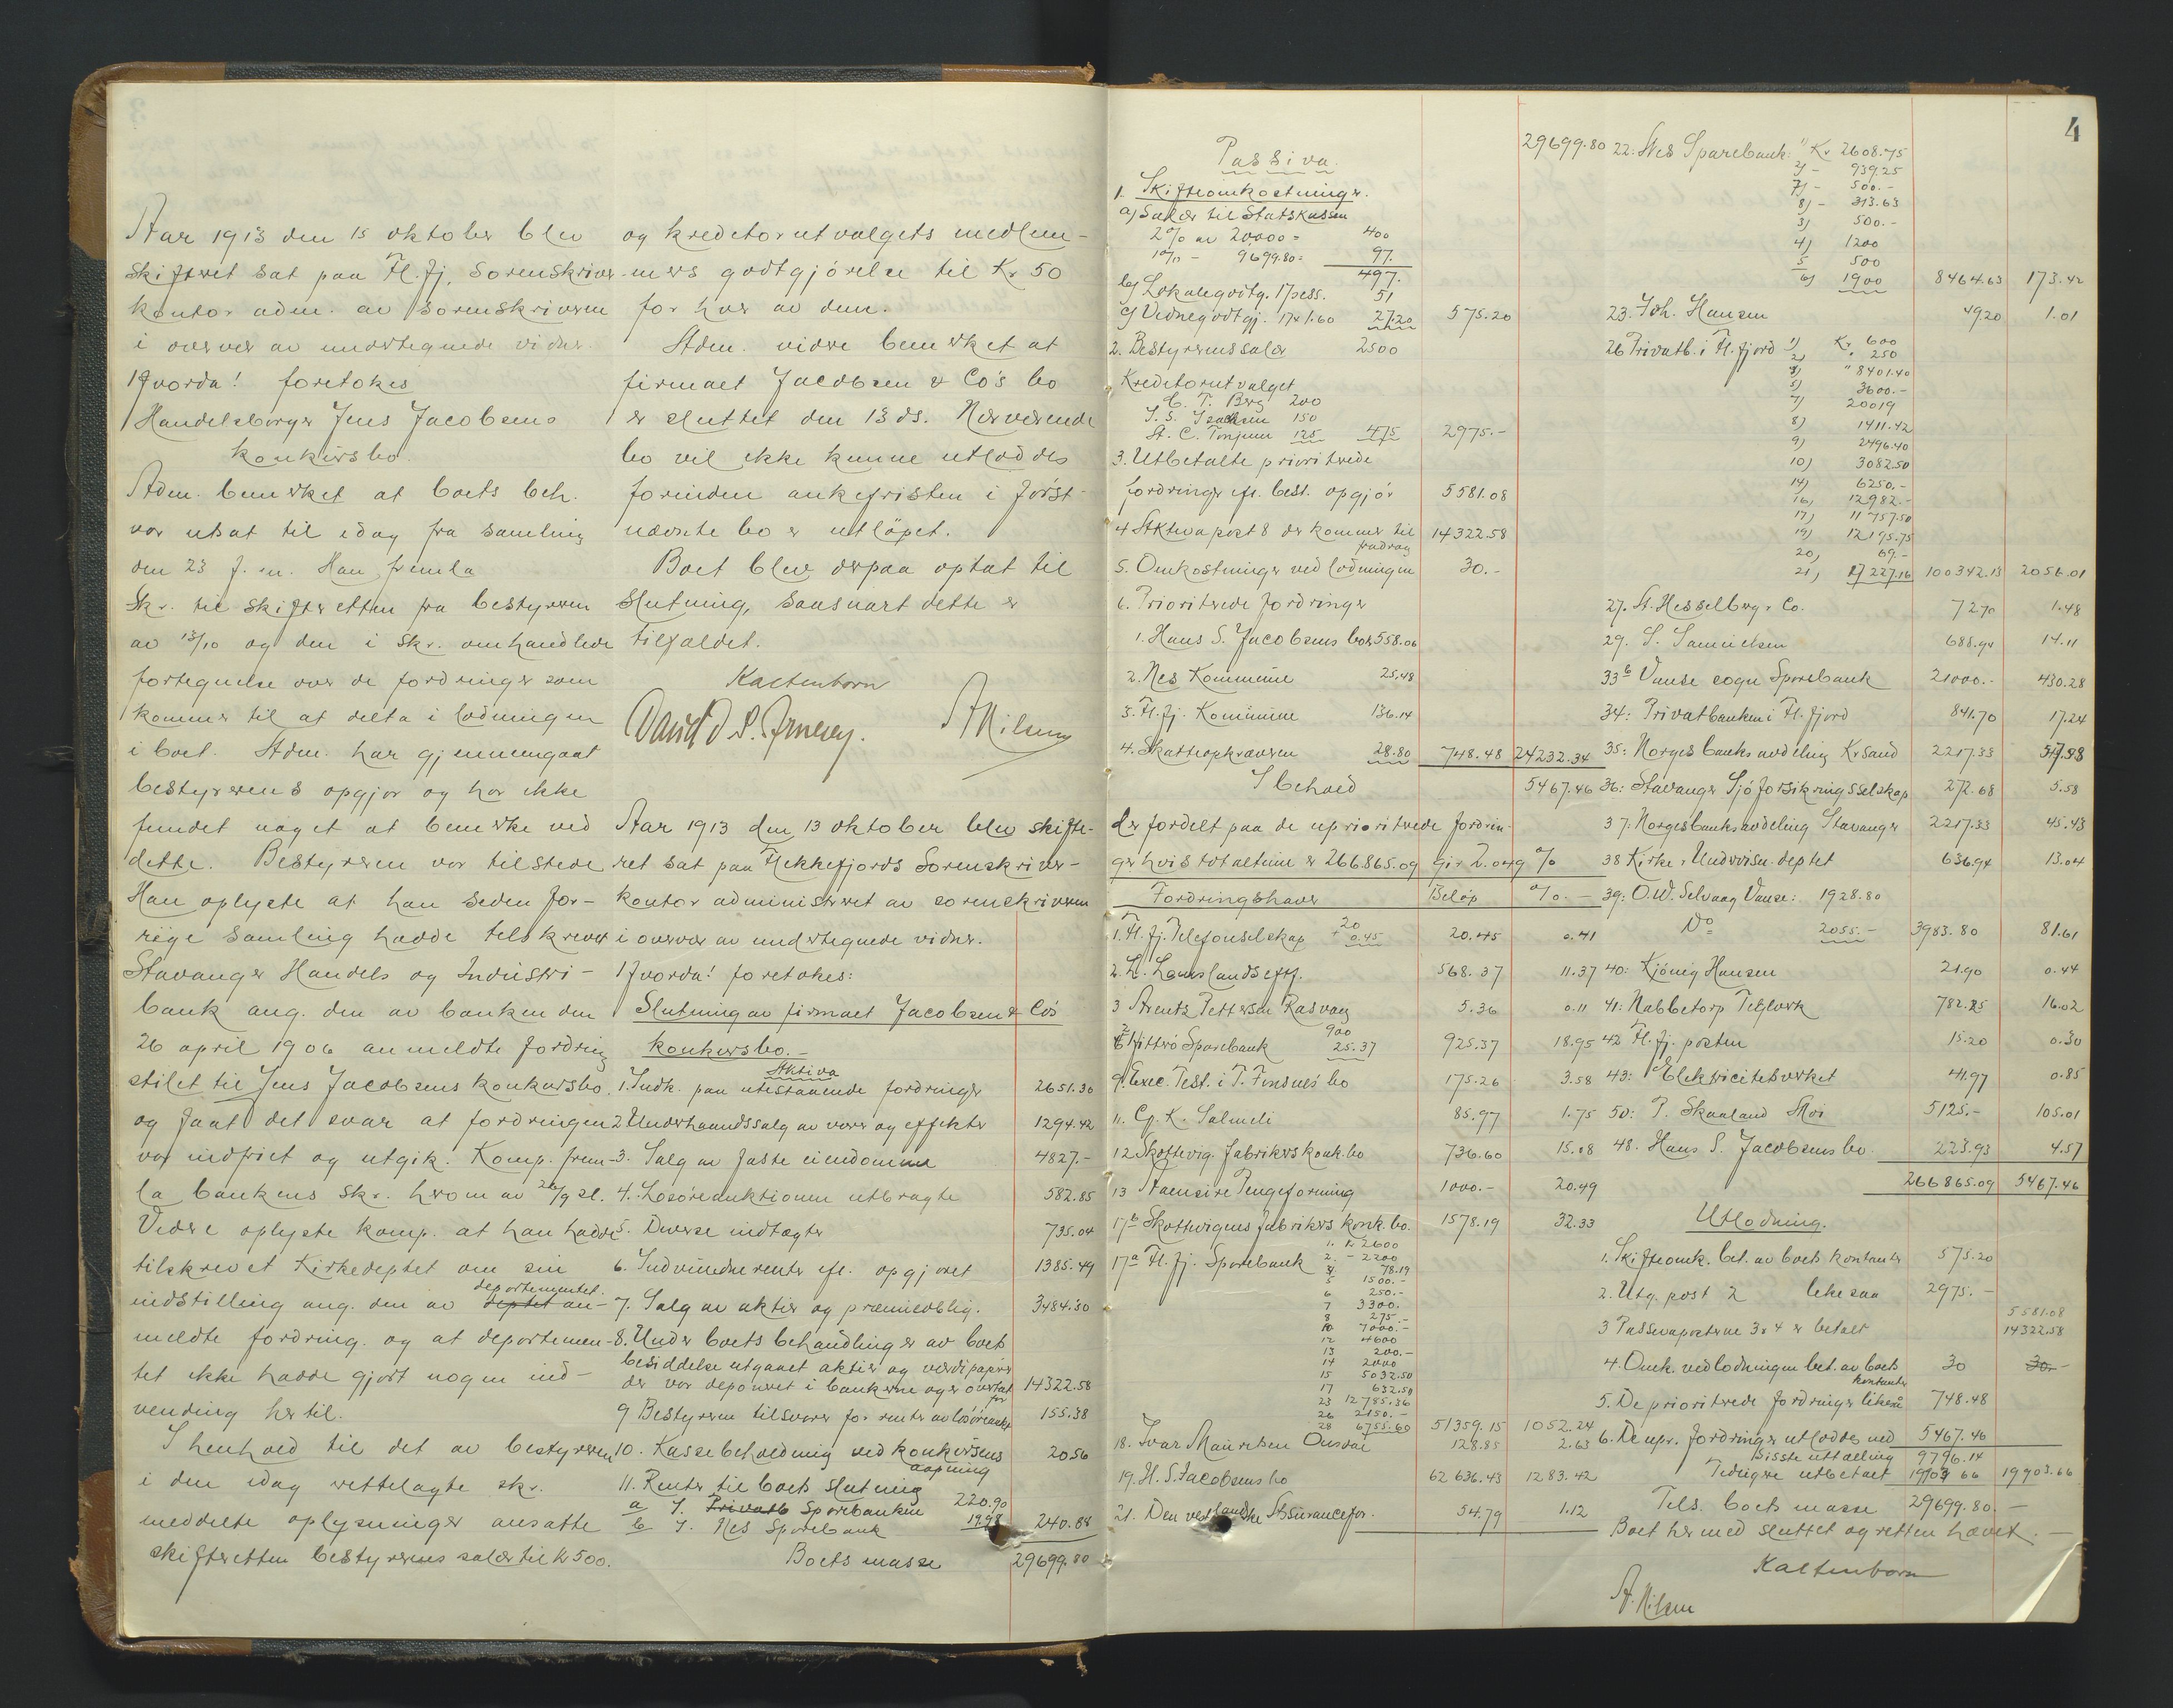 Aar 1913 den 15 oktober blev
skifteret sat paa Fl.fj. Sorenskriver-
kontor adm. av Sorenskriveren
i overvær av undertegnede vidner.
Hvorda! foretokes
Handelsborger Jens Jacobsens
konkursbo.
Adm. bemerket at boets beh.
var utsat til idag fra samling
den 23 f. m. Han fremla
skr. til skifteretten fra bestyreren
av 13/10 og den i skr. omhandlede
fortegnelse over de fordringer som
kommer til at delta i lodningen
i boet. Adm. har gjennemgaat
bestyrerens opgjør og har ikke
fundet noget at bemerke ved
dette. Bestyreren var tilstede
Han oplyste at han siden for-
rige samling hadde tilskrevet
Stavanger Handels og Industri-
bank ang. den av banken den
26 april 1906 anmeldte fordring
stilet til Jens Jacobsens konkursbo
og faat det svar at fordringen
var indfriet og utgik. Komp. frem-
la bankens skr. herom av 26/9 sl.
Videre oplyste komp. at han hadde
tilskrevet Kirkedeptet om sin
departementet
indstilling ang. den av deptet an-
meldte fordring. og at departemen-
tet ikke hadde gjort nogen ind-
vending hertil.
I henhold til det av bestyreren
i den idag rettelagte skr.
meddelte oplysninger ansatte
skifteretten bestyrerens salær til kr 500.
og kreditorutvalgets medlem-
mers godtgjørelse til Kr 50
for hver av dem.
Adm. videre bemerket at
firmaet Jacobsen & Co's bo
er sluttet den 13 ds. Nærværende
bo vil ikke kunne utloddes
forinden ankefristen i først-
nævnte bo er utløpet.
Boet blev derpaa optat til
Slutning, saasnart dette er
tilfaldet.
Kaltenborn
David S. Arnesen. A Nilsen
Aar 1913 den 13 oktober blev skifte-
ret sat paa Flekkefjords Sorenskriver-
kontor administreret av sorenskriveren
i overvær av undertegnede vidner.
Hvorda! foretokes:
Slutning av firmaet Jacobsen & Co's
konkursbo.-
Aktiva
1. Indk. paa utestaaende fordringer 2651.30
2. Underhaandssalg av varer og effekter 1294.42
3. Salg av faste eiendomme 4827.-
4. Løsøreauktionen utbragte 582.85
5. Diverse indtægter 735.04
6. Indvundne renter efl. opgjøret 1385.49
7. Salg av aktier og præmieoblig. 3484.30
8. Under boets behandling er av boets
besiddelse utgaaet aktier og værdipapirer
der var deponeret i bankerne og er overtat for 14322.58
9 Bestyreren tilsvarer for renter av løsøreauk 155.38
10. Kassebeholdning ved konkursens
aapning 20.56
11. Renter til boets slutning
a I. Privatb Sparebanken 220.90
b I. Nes Sparebank 19.98 240.88
Boets masse 29699.80
4
Passiva. 29699.80
1. Skifteomkostninger.
a) Salær til Statskassen
2% av 20000 = 400
1% - 9699.80 = 97.
497.
b) Lokalegodtg. 17 sess. 51
c) Vidnegodtgj. 17 x 1.60 27.20 575.20
2. Bestyrerens salær 2500
Kreditorutvalget
C. T. Berg 200
J. S. Isaksen 150
A. C. Tonjum 125 475 2975.-
3. Utbetalte prioriterede
fordringer efl. best. opgjør 5581.08
4 Aktiva post 8 der kommer til
fradrag 14322.58
5. Omkostninger ved lodningen 30.-
6. Prioriterede fordringer
1. Hans S. Jacobsens bo 558.06
2. Nes Kommune 25.48
3. Fl. fj. Kommune 136.14
4. Skatteopkræveren 28.80 748.48 24232.34
I behold 5467.46
der fordelt paa de uprioriterede fordrin-
ger hvis totalsum er 266.865.09 gir 2.049 %
Fordringshaver Beløp %.-
1. Fl. fj. Telefonselskap 20 + 0.45 20.45 0.41
2. L. Lauslands eftf. 568.37 11.37
3 Arents Pettersen Rasvaag 5.36 0.11
Hitterø Sparebank 900 25.37 925.37 18.95
9. Exec. Test. i T. Finsnes' bo 175.26 3.58
11. Cg. K. Salmeli 85.97 1.75
12 Skottevig. fabrikers konk.bo 736.60 15.08
13 Staensire Pengeforening 1000.- 20.49
17b Skottevigens fabrikers konk. bo. 1578.19 32.33
17a Fl. fj. Sparebank 1. kr 2600
2. - 2200
4 78.19
5 1500.-
6 250.-
7 3300.
8 275.-
10 7000.-
12 4600
13 200.-
14 2000
15 5032.50
17 632.50
23 12785.36
26 2150.-
28 6755.60 51359.15 1052.24
18. Ivar Mauritsen Ousdal 128.85 2.63
19. H. S. Jacobsens bo 62636.43 1283.42
21. Den vestlandske Assurancefor. 54.79 1.12
22. Nes Sparebank. 1) Kr 2608.75
2) - 939.25
7) - 500.-
8) - 313.63
3) 500.-
4) 1200
5 500
6) 1900 8464.63 173.42
23. Joh. Hansen 49.20 1.01
26 Privatb. i Fl. fjord 1) Kr. 600
2) " 250
" 8401.40
5) 3600.-
7) 20019
8) 1411.42
9) 2496.40
10) 3082.50
14) 6250.-
16) 12982.-
17) 11757.50
19) 12195.75
20) 69.-
21) 17227.16 100342.13 2056.01
27. A. Hesselberg & Co. 72.70 1.48
29. S. Samuelsen 688.94 14.11
33b Vanse sogn Sparebank 21000.- 430.28
34: Privatbanken i Fl. fjord 841.70 17.24
35: Norges banks avdeling Kr.sand 2217.33
36: Stavanger Sjøforsikringsselskap 272.68 5.58
37. Norges banks avdeling Stavanger 2217.33 45.43
38 Kirke & Undervisn. deptet 636.94 13.04
39: O. W. Selvaag Vanse: 1928.80
Do 2055.- 3983.80 81.61
40: Kjønig Hansen 21.90 0.44
41: Nabbetorp Teglverk 782.25 16.02
42 Fl. fj. posten 15.20 0.30
43: Elektricitetsverket 41.97 0.85
50: P. Skaaland Moi 5125.- 105.01
48. Hans S. Jacobsens bo. 223.93 4.57
266865.09 5467.46
Utlodning.
1. Skifteomk. bet. av boets kontanter 575.20
2. Utg. post 2 likesaa 2975.-
3 Passivaposterne 3 & 4 er betalt 5581.08
14322.58
4. Omk. ved lodningen bet. av boets
kontanter 30 30.-
5. De prioriterede fordringer likesaa 748.48
6. De upr. fordringer utloddes med 5467.46
Sidste uttælling 9796.14
Tidligere utbetalt 19903.66 19903.66
Tils. boets masse 29699.80.-
Boet hermed sluttet og retten hævet.-
Kaltenborn
A. Nilsen